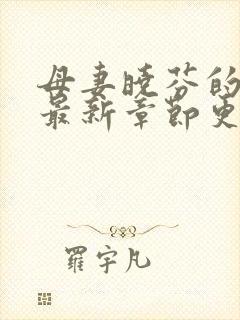 母妻晓芬的
最新章节更
羅宇凡